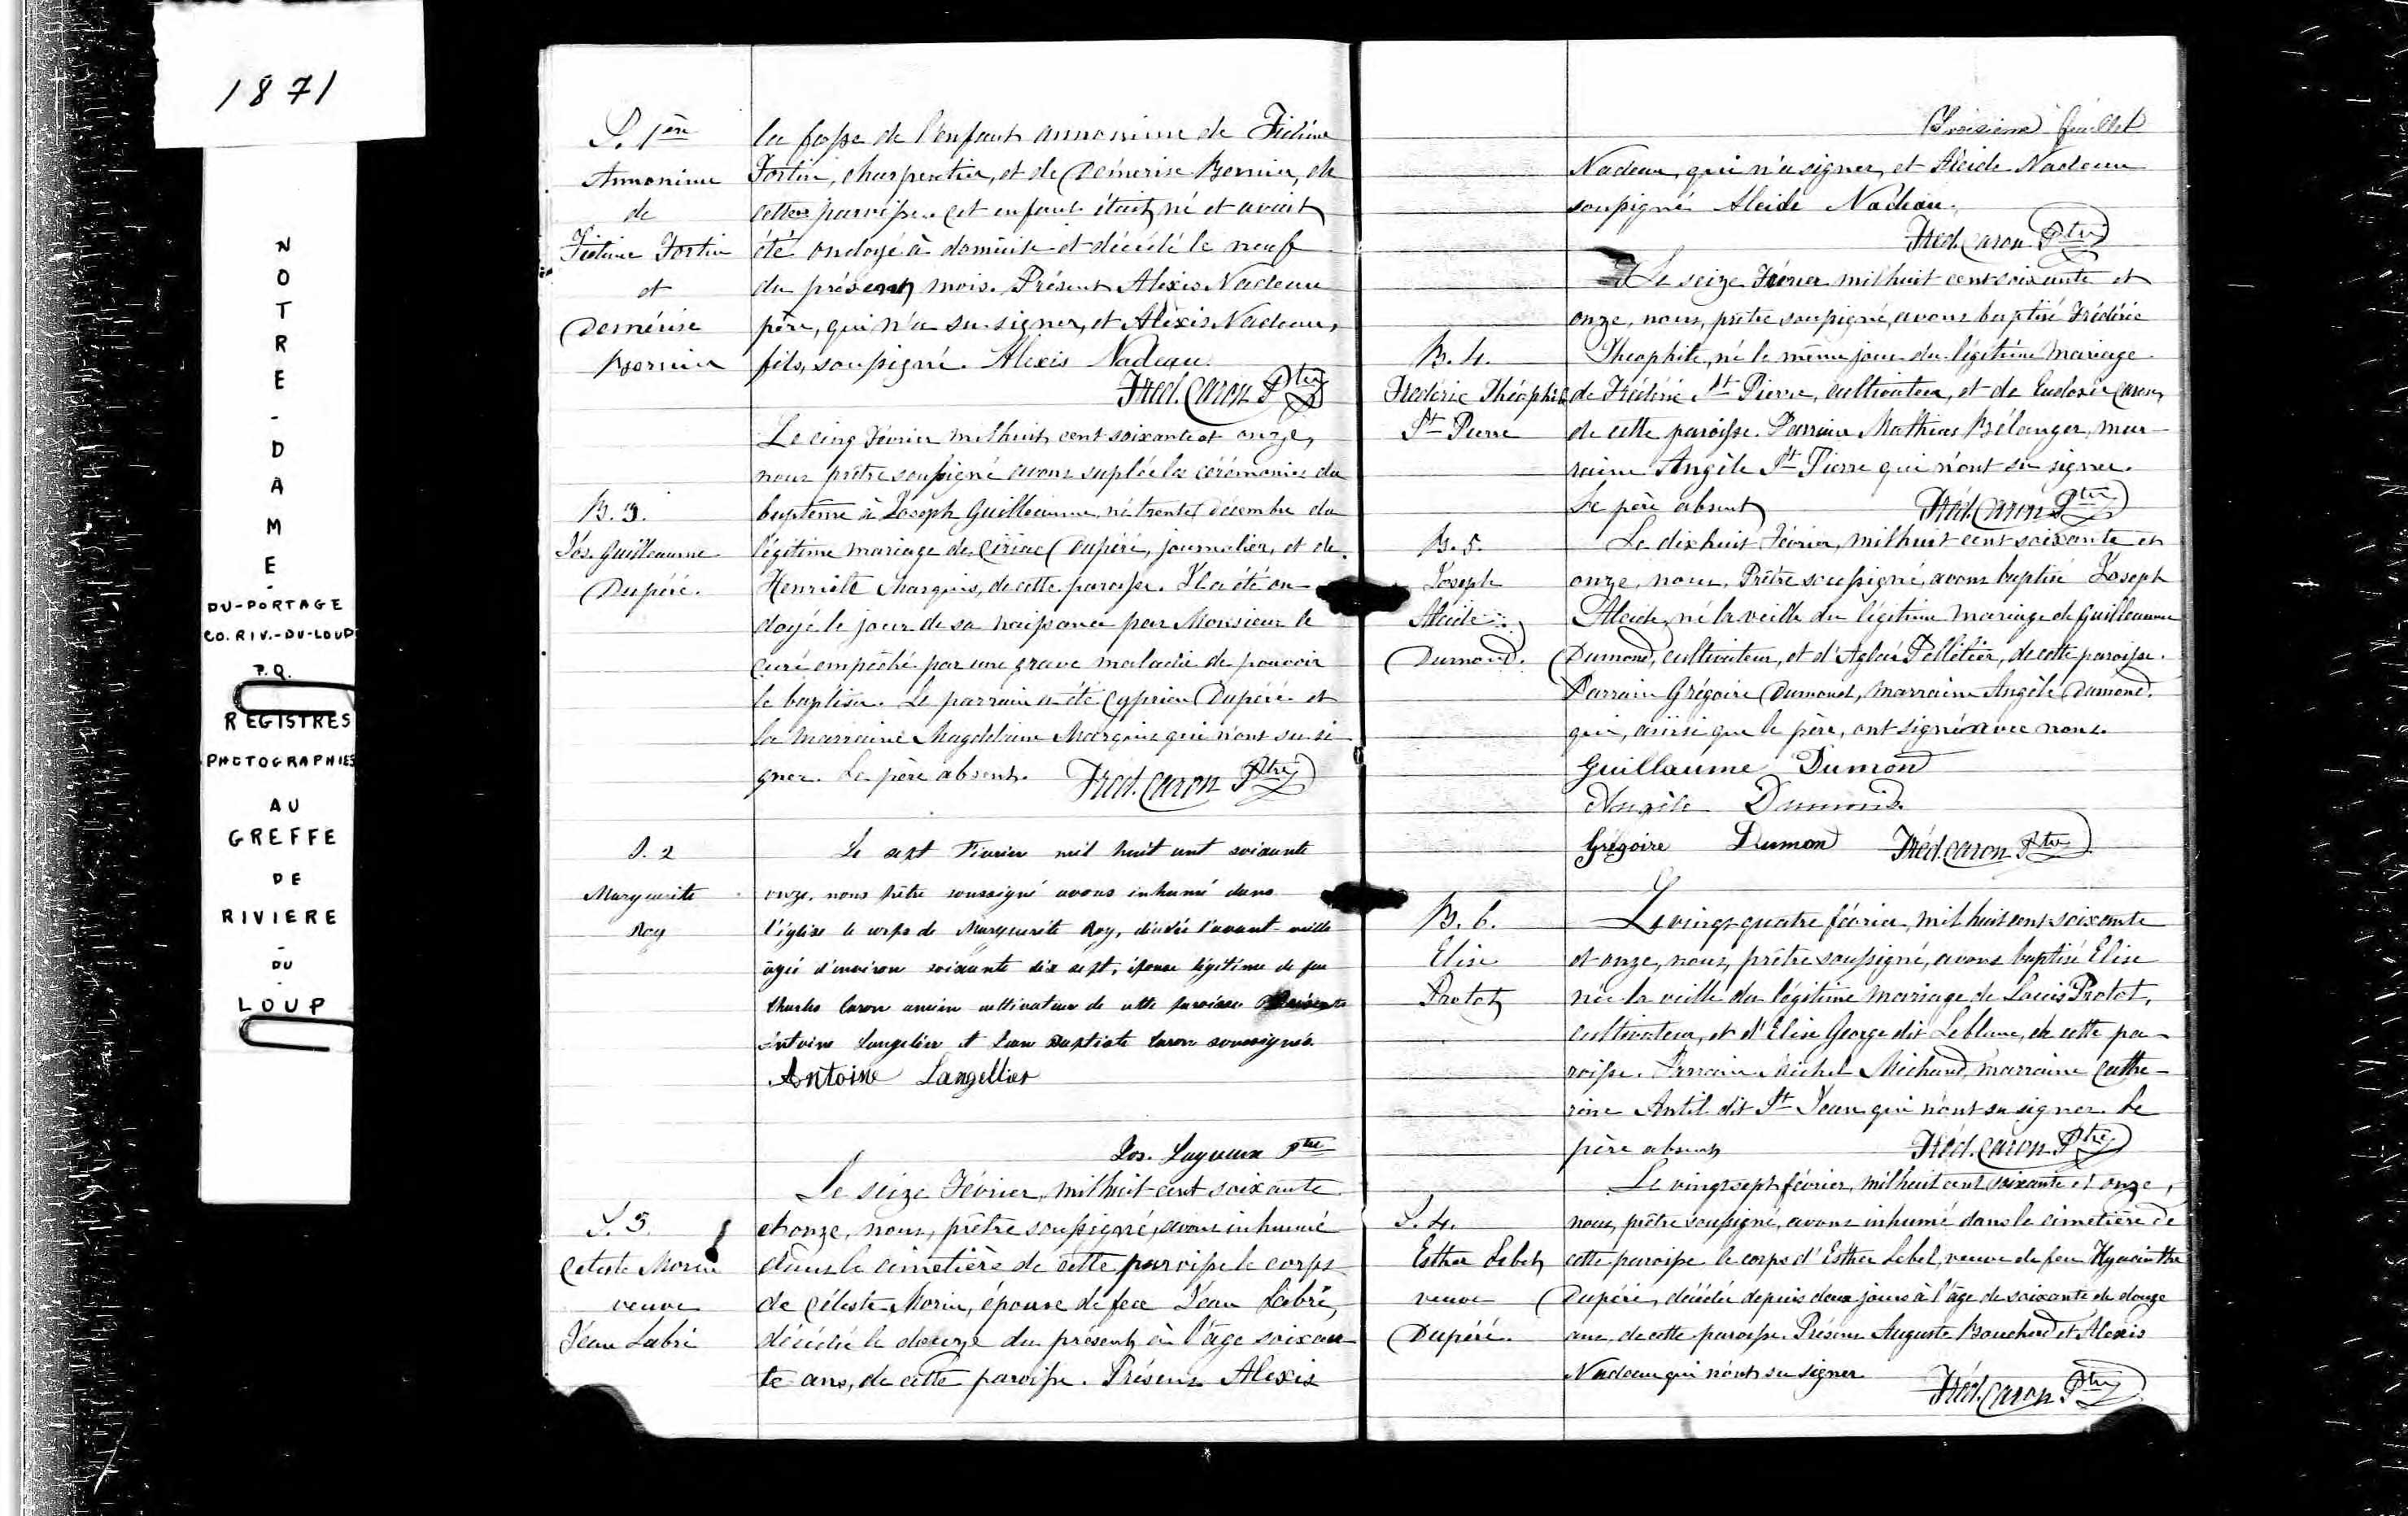 1871
NOTRE-DAME-
DU-PORTAGE
CO. RIV.-DU-LOUP
P.Q.
REGISTRES
PHOTOGRAPHIES
AU
GREFFE
DE
RIVIERE
-
DU
-
LOUP
S. 1ère
Annonime
de
Fortin
et
Démérise
Bernier
la fosse de l'enfant annonime de
Fortin, charpentier, et de Démerise Bernier, de
cette paroisse. Cet enfant était né et avait
été ondoyé à domicile et décédé le neuf
du présent mois. Présent Alexis Nadeau
père, qui n'a su signer, et Alexis Nadeau,
fils, soussigné. Alexis Nadeau
Fréd. Caron Ptre
B. 3.
Jos. Guillaume
Dupéré.
Le cinq Février mil huit cent soixante et onze,
nous prêtre soussigné avons suplée les cérémonies du
baptême à Joseph Guillaume, né trente décembre du
légitime mariage de Ciriac Dupéré, journalier, et de
Henriette Marquis, de cette paroisse. Il a été on-
doyé le jour de sa naissance par Monsieur le
curé empêché par une grave maladie de pouvoir
le baptiser. Le parrain a été Cyprien Dupéré et
la marraine Magdelaine Marquis qui n'ont su si-
gner. Le père absent. Fréd. Caron Ptre
S. 2
Marguerite
Roy
Le sept Février mil huit cent soixante
onze, nous prêtre soussigné avons inhumé dans
l'église le corps de Marguerite Roy, décédée l'avant-veille
âgée d'environ soixante dix sept, épouse légitime de feu
Charles Caron ancien cultivateur de cette paroisse Présents
Antoine Langelier et Jean Baptiste Caron soussignés
Antoine Langellier
Jos. Lagueux Ptre
S. 3.
Celeste Morin
veuve
Jean Labri
Le seize Février, mil huit cent soixante
et onze, nous, prêtre soussigné, avons inhumé
dans le cimetière de cette paroisse le corps
de Céleste Morin, épouse de feu Jean Labri,
décédée le douze du présent à l'âge soixan-
te ans, de cette paroisse. Présens Alexis
Troisième feuillet
Nadeau, qui n'a signer, et Alcide Nadeau
soussigné Alcide Nadeau.
Fréd. Caron Ptre
B. 4.
Fréderic Théophile
St Pierre
Le seize Février mil huit cent soixante et
onze, nous, prêtre soussigné, avons baptisé Fréderic
Théophile, né le même jour du légitime mariage
de Fréderic St Pierre, cultivateur, et de Eudoxie Caron,
de cette paroisse. Parrain Mathias Bélanger, mar-
raine Angèle St Pierre qui n'ont su signer.
Le père absent Fréd. Caron Ptre
B. 5.
Joseph
Alcide
Dumond.
Le dix huit Février, mil huit cent soixante et
onze, nous, Prêtre soussigné, avons baptisé Joseph
Alcide, né la veille du légitime mariage de Guillaume
Dumond, cultivateur, et d'Aglaé Pelletier, de cette paroisse.
Parrain Grégoire Dumond, marraine Angèle Dumond.
qui, ainsi que le père, ont signé avec nous.
Guillaume Dumond
Angèle Dumond
Grégoire Dumond Fréd. Caron Ptre
B. 6.
Elise
Protot
Le vingt quatre février, mil huit cent soixante
et onze, nous, prêtre soussigné, avons baptisé Elise
née la veille du légitime mariage de Louis Protot,
cultivateur, et d'Elise George dit Leblanc, de cette pa-
roisse. Parrain Michel Michaud, marraine Cathe-
rine Antil dit St Jean qui n'ont su signer. Le
père absent Fréd. Caron Ptre
S. 4.
Esther Lebel
veuve
Dupéré.
Le vingt sept février, mil huit cent soixante et onze,
nous, prêtre soussigné, avons inhumé dans le cimetière de
cette paroisse le corps d'Esther Lebel, veuve de feu Hyacinthe
Dupéré, décédée depuis deux jours à l'âge de soixante de douze
ans, de cette paroisse. Présens Auguste Bouchard et Alexis
Nadeau qui n'ont su signer Fréd. Caron Ptre